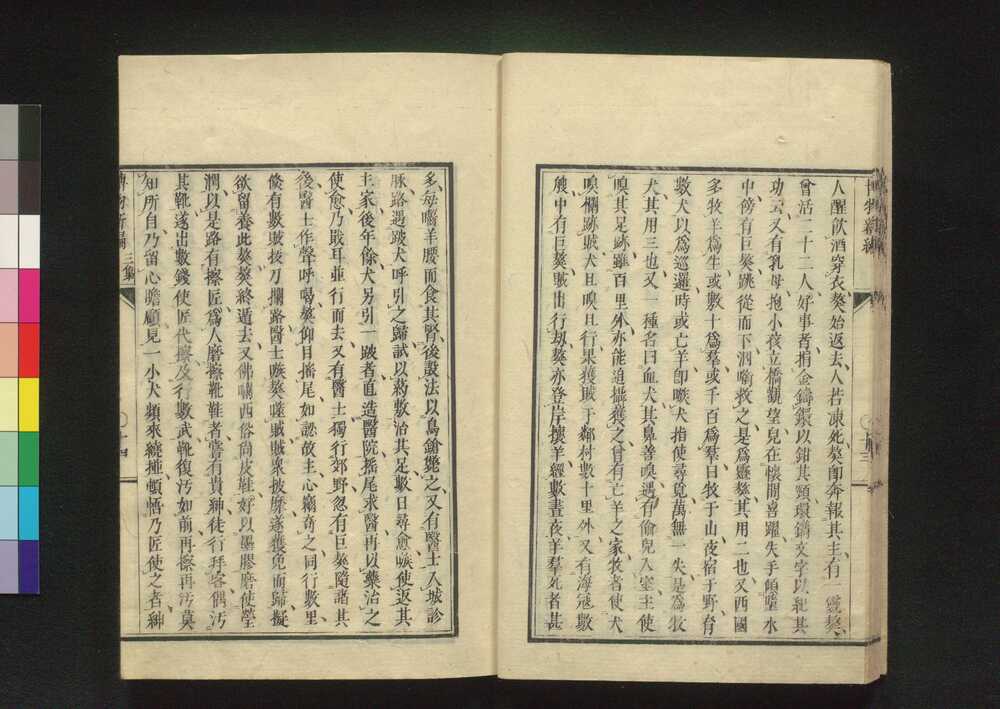 人醒飲酒穿衣獒始返去人若凍死獒卽奔報其主有一靈獒
曾活二十二人好事者捐金鑄銀以鉗其頸環鐫文字以紀其
功云又有乳母抱小孩立橋觀望兒在懷間喜躍失手傾墜水
中傍有巨獒跳從而下泅啣救之是爲靈獒其用二也又西國
多牧羊爲生或數十爲羣或千百爲羣日牧于山夜宿于野育
數犬以爲巡邏時或亡羊卽嗾犬指使尋覓萬無一失是爲牧
犬其用三也又一種名曰血犬其鼻善嗅遇有偷兒入室主使
嗅其足跡雖百里外亦能追攝獲之曾有亡羊之家牧者使犬
嗅㯹跡賊犬且嗅且行果獲賊于鄰村數十里外又有海冦數
艘中有巨獒賊出行刼獒亦登岸攘羊經數晝夜羊羣死者甚
多毎囓羊腰而食其腎後設法以鳥鎗斃之又有醫士入城診
脉路遇跛犬呼引之歸試以葯敷治其足數日尋愈嗾使返其
主家後年餘犬另引一跛者直造醫院搖尾求醫再以藥治之
使愈乃戢耳並行而去又有醫士獨行郊野忽有巨獒隨諸其
後醫士作聲呼喝獒仰目搖尾如認故主心竊奇之同行數里
倏有數賊拔刀攔路醫士嗾獒噬賊賊衆披靡遂獲免而歸擬
欲留養此獒獒終遁去又佛嘣西俗尙皮鞋好以墨膠磨使瑩
潤以是路有擦匠爲人磨擦靴鞋者嘗有貴紳徒行拜客偶汚
其靴遂出數錢使匠代擦及行數武靴復汚如前再擦再汚莫
知所自乃留心瞻顧見一小犬頻來繞捶頓悟乃匠使之者紳
博物新編 三集